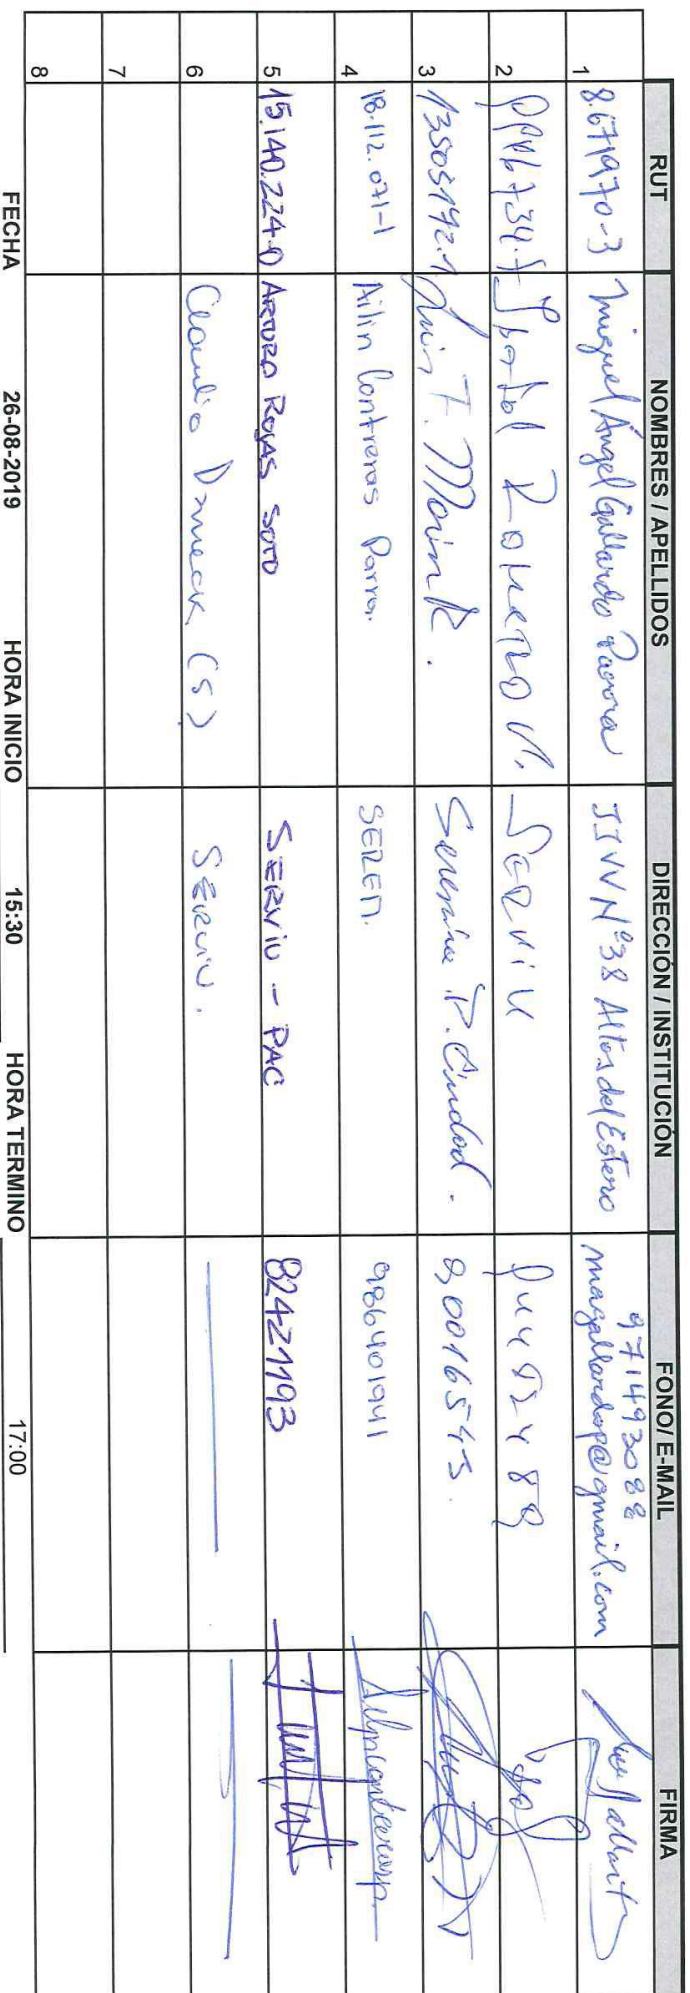 RUT NOMBRES / APELLIDOS DIRECCIÓN / INSTITUCIÓN FONO/ E-MAIL FIRMA
1 8.671970-3 Miguel Ángel Gallardo JJVV Nº38 Altos del Estero 971493088 magallardop@gmail.com
2 SERViU
3 13505192-1 Luis T. P. Ciudad. 90016545.
4 18.112.071-1 Ailin Contreras Parra. SEREMI. 986401941
5 15.140.224-0 ARTURO ROJAS SOTO SERViU - PAC 82421193
6 Claudio (S) SERViU.
7
8
FECHA 26-08-2019 HORA INICIO 15:30 HORA TERMINO 17:00